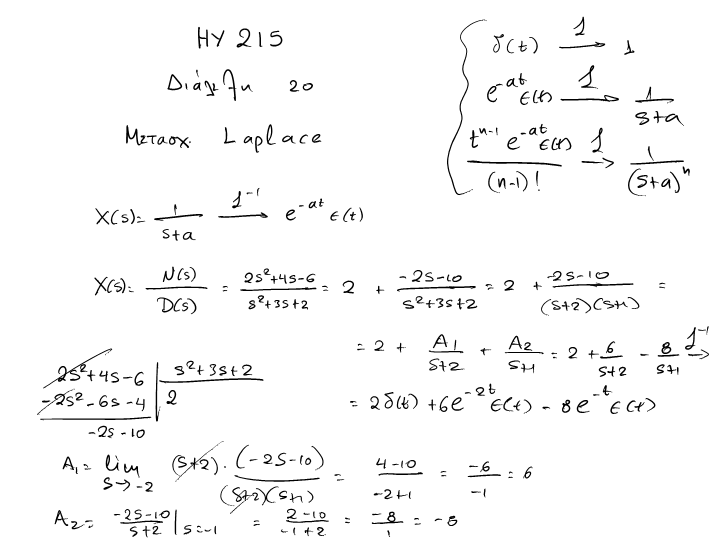 HY 215
Διάλεξη 20
Μετασχ. Laplace
δ(t) --L--> 1
e^{-at} ε(t) --L--> 1/(s+a)
t^{n-1} e^{-at} ε(t) / (n-1)! --L--> 1/(s+a)^n
X(s) = 1/(s+a) --L^{-1}--> e^{-at} ε(t)
X(s) = N(s)/D(s) = (2s²+4s-6)/(s²+3s+2) = 2 + (-2s-10)/(s²+3s+2) = 2 + (-2s-10)/((s+2)(s+1)) =
= 2 + A₁/(s+2) + A₂/(s+1) = 2 + 6/(s+2) - 8/(s+1) --L^{-1}-->
= 2δ(t) + 6e^{-2t} ε(t) - 8e^{-t} ε(t)
2s²+4s-6 | s²+3s+2
-2s²-6s-4 | 2
-2s-10
A₁ = lim_{s→-2} (s+2)·(-2s-10)/((s+2)(s+1)) = (4-10)/(-2+1) = -6/-1 = 6
A₂ = (-2s-10)/(s+2) |_{s=-1} = (2-10)/(-1+2) = -8/1 = -8